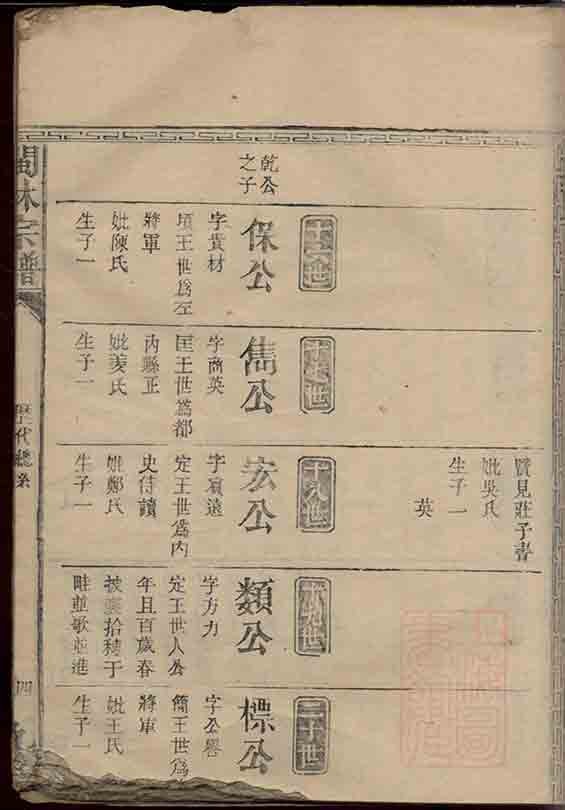 賢見莊子書
妣吳氏
生子一
英
乾公
之子
保公
字貴材
頃王世爲左
將軍
妣陳氏
生子一
雋公
字商英
匡王世爲都
內縣正
妣姜氏
生子一
十八世
宏公
定王世爲內
史侍讀
妣鄭氏
生子一
類公
字方力
定王世人公
年且百歲春
被裘拾穗于
畦並歌並進
二十世
標公
字公譽
簡王世爲
將軍
妣王氏
生子一
林宗譜
歷代總系
四